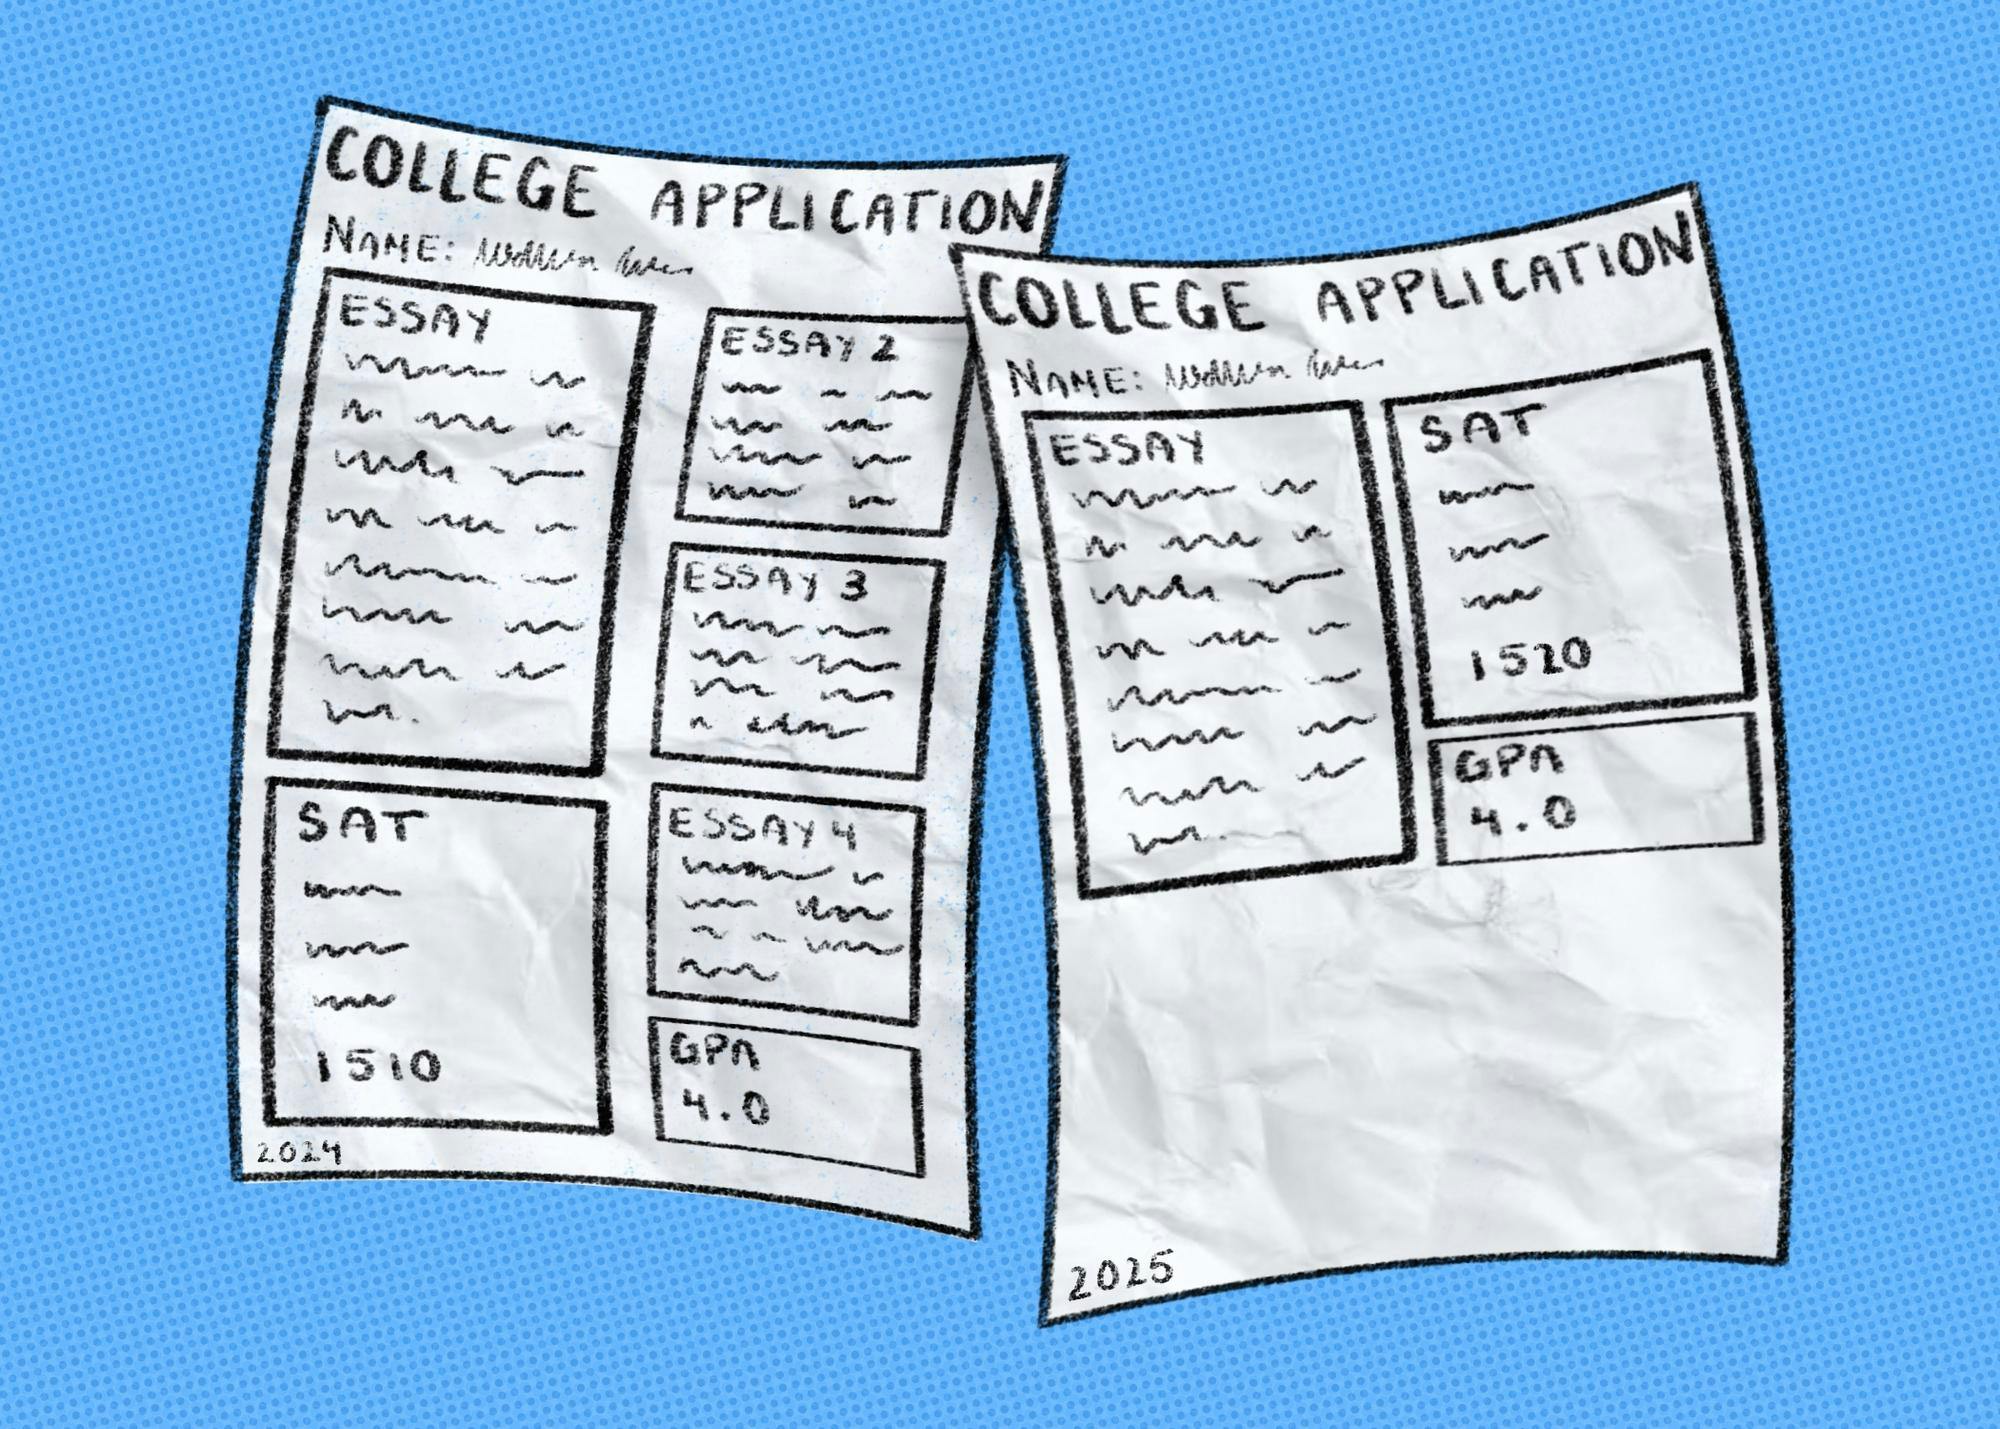 COLLEGE APPLICATION
NAME:
ESSAY
ESSAY 2
ESSAY 3
SAT
1510
ESSAY 4
GPA
4.0
2024
COLLEGE APPLICATION
NAME:
ESSAY
SAT
1520
GPA
4.0
2025